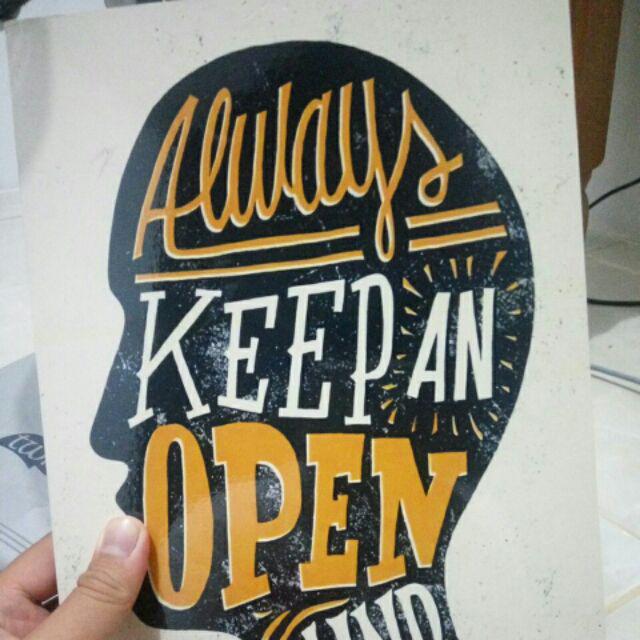 Always
KEEP AN
OPEN
MIND